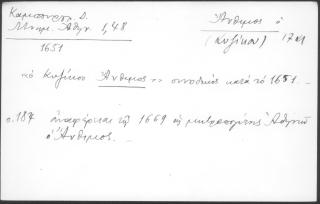 Καμπούρογλ. Δ.
Μνημ. Ἀθην. 1,48
1651
Ἄνθιμος ὁ
(Κυζίκου) 17 αι
ὁ Κυζίκου Ἄνθιμος συνοδικός κατά τό 1651 -
σ. 187 ἀναφέρεται τῷ 1669 ὡς μητροπολίτης Ἀθηνῶν
ὁ Ἄνθιμος. -